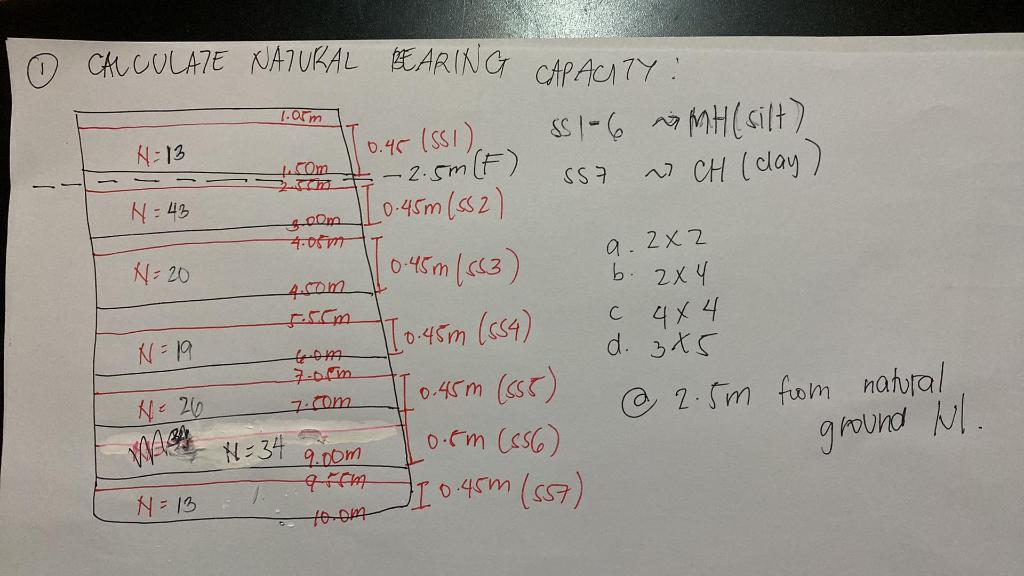 ① CALCULATE NATURAL BEARING CAPACITY:
1.05m
N=13
0.45 (SS1)
1.50m
2.5m (F)
2.55m
N=43
0.45m (SS2)
3.00m
4.05m
N=20
0.45m (SS3)
4.50m
5.55m
N=19
0.45m (SS4)
6.0m
7.05m
N=26
0.45m (SS5)
7.50m
N=34
0.5m (SS6)
9.00m
9.55m
N=13
0.45m (SS7)
10.0m
SS1-6 ⇝ MH (silt)
SS7 ⇝ CH (clay)
a. 2x2
b. 2x4
c 4x4
d. 3x5
@ 2.5m from natural
ground Nl.